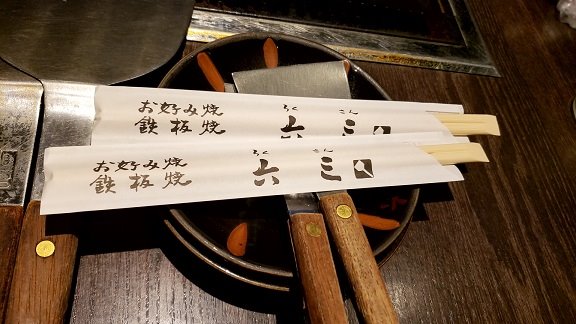 お好み焼
鉄板焼
ろく さん
六 三
お好み焼
鉄板焼
ろく さん
六 三